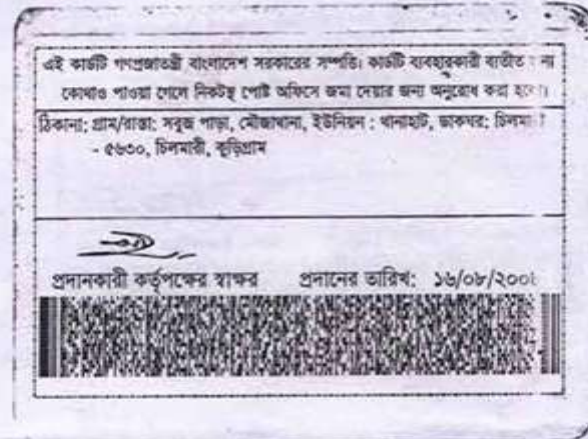 এই কার্ডটি গণপ্রজাতন্ত্রী বাংলাদেশ সরকারের সম্পত্তি। কার্ডটি ব্যবহারকারী ব্যতীত
কোথাও পাওয়া গেলে নিকটস্থ পোষ্ট অফিসে জমা দেয়ার জন্য অনুরোধ করা
ঠিকানা: গ্রাম/রাস্তা: সবুজ পাড়া, মৌজাথানা, ইউনিয়ন : থানাহাট, ডাকঘর:
- ৫৬৩০, চিলমারী, কুড়িগ্রাম
প্রদানকারী কর্তৃপক্ষের স্বাক্ষর প্রদানের তারিখ: